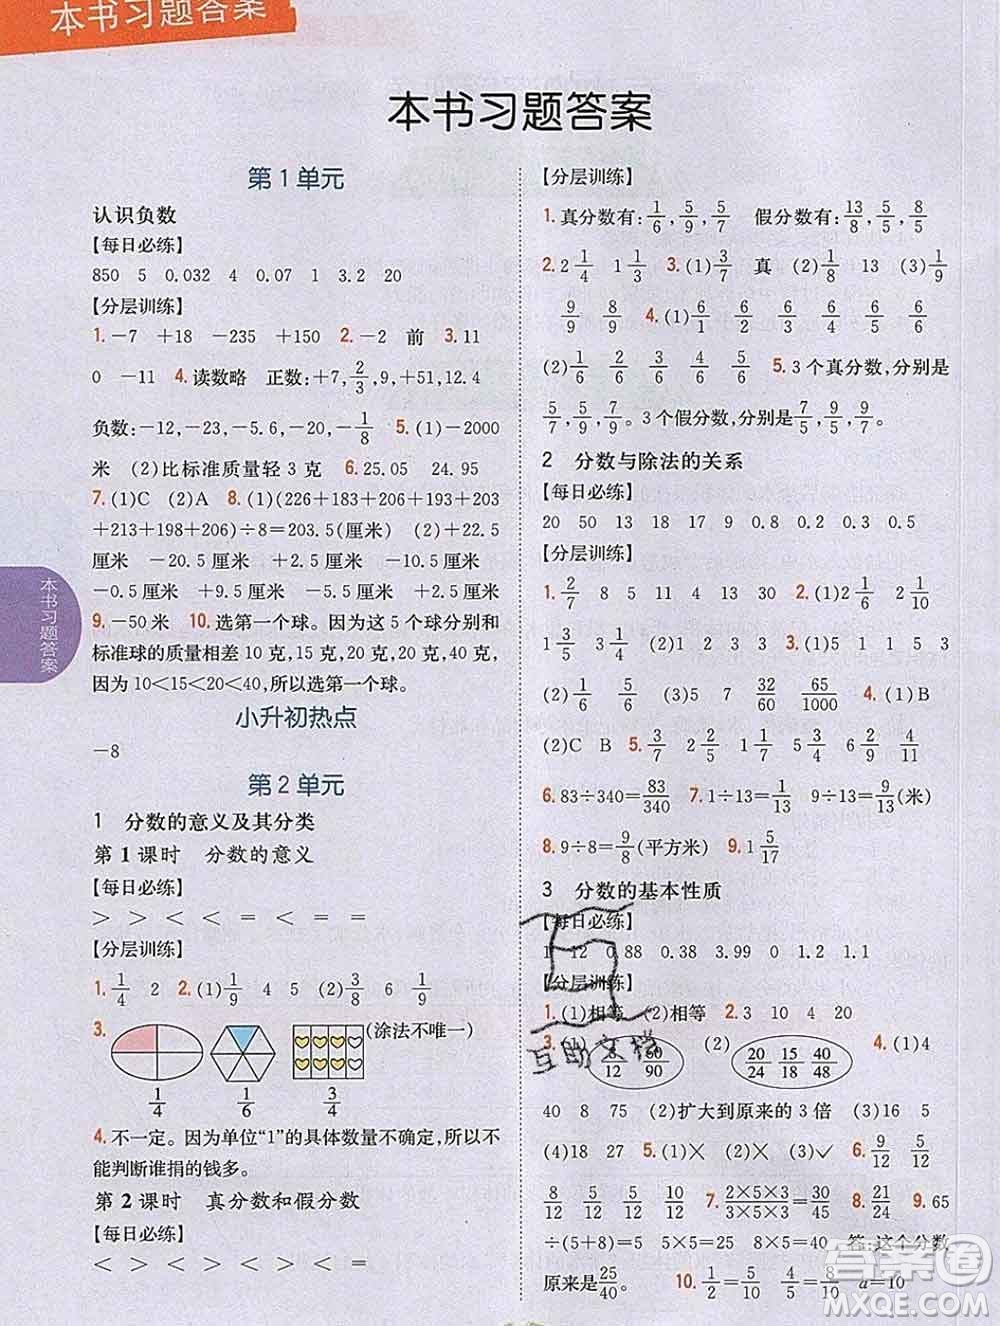 本书习题答案
本书习题答案
本书习题答案
第1单元
认识负数
【每日必练】
850 5 0.032 4 0.07 1 3.2 20
【分层训练】
1. −7 +18 −235 +150 2. −2 前 3. 11
0 −11 4. 读数略 正数:+7, 2/3, 9, +51, 12.4
负数:−12, −23, −5.6, −20, −1/8 5. (1)−2000
米 (2)比标准质量轻3克 6. 25.05 24.95
7. (1)C (2)A 8. (1)(226+183+206+197+203
+213+198+206)÷8=203.5(厘米) (2)+22.5
厘米 −20.5厘米 +2.5厘米 −6.5厘米
−0.5厘米 +9.5厘米 −5.5厘米 +2.5厘米
9. −50米 10. 选第一个球。因为这5个球分别和
标准球的质量相差10克,15克,20克,40克,20克,
因为10<15<20<40,所以选第一个球。
小升初热点
−8
第2单元
1 分数的意义及其分类
第1课时 分数的意义
【每日必练】
> > > < < = < = <
【分层训练】
1. 1/4 2 2. (1)1/9 4 5 (2)3/8 6
3. (涂法不唯一)
1/4 1/6 3/4
4. 不一定。因为单位“1”的具体数量不确定,所以不
能判断谁捐的钱多。
第2课时 真分数和假分数
【每日必练】
< > < > < = < > <
【分层训练】
1. 真分数有:1/6, 5/9, 5/7 假分数有:13/8, 5/5, 8/5
2. 2 1/4 1 1/3 3. (1)真 (2)1/8 13 (3)1/9
9/9 8/9 10/9 4. (1)6/1 6/2 6/3 6/4 6/5 6/6
(2)1/6 2/6 3/6 4/6 5/6 5. 3个真分数,分别是
5/7, 5/9, 7/9。3个假分数,分别是7/5, 9/5, 9/7。
2 分数与除法的关系
【每日必练】
20 50 13 18 17 9 0.8 0.2 0.3 0.5
【分层训练】
1. 2/7 8 5 11 4 13 30 2. (1)2 1/2 2 1/10
1 3/8 1 1/3 1 5/6 3 1/4 3. (1)5 1 1 5 3
(2)1/6 5/6 (3)4 5 7 32/60 65/1000 4. (1)B
(2)C B 5. 3/7 3/4 2 1/2 1 1/7 6 2/5 4/11
6. 83÷340=83/340 7. 1÷13=1/13 9÷13=9/13(米)
8. 9÷8=9/8(平方米) 9. 1 5/17
3 分数的基本性质
【每日必练】
1 12 0.88 0.38 3.99 0 1.2 1.1
【分层训练】
1. (1)相等 (2)相等 2. 3 10 4 20
3. (1) 8/12 60/90 (2) 20/24 15/18 40/48 4. (1)4
40 8 75 (2)扩大到原来的3倍 (3)16 5
(4)18 27 5. (1)✕ (2)✕ (3)✓ 6. 9/12 5/12
8/12 5/12 5/12 10/12 7. 2×5×3/3×5×3=30/45 8. 21/24 9. 65
÷(5+8)=5 5×5=25 8×5=40 答:这个分数
原来是25/40。 10. 1/2=5/10 4/5=8/10 a=10
互助文档
答案圈
MXQE.COM